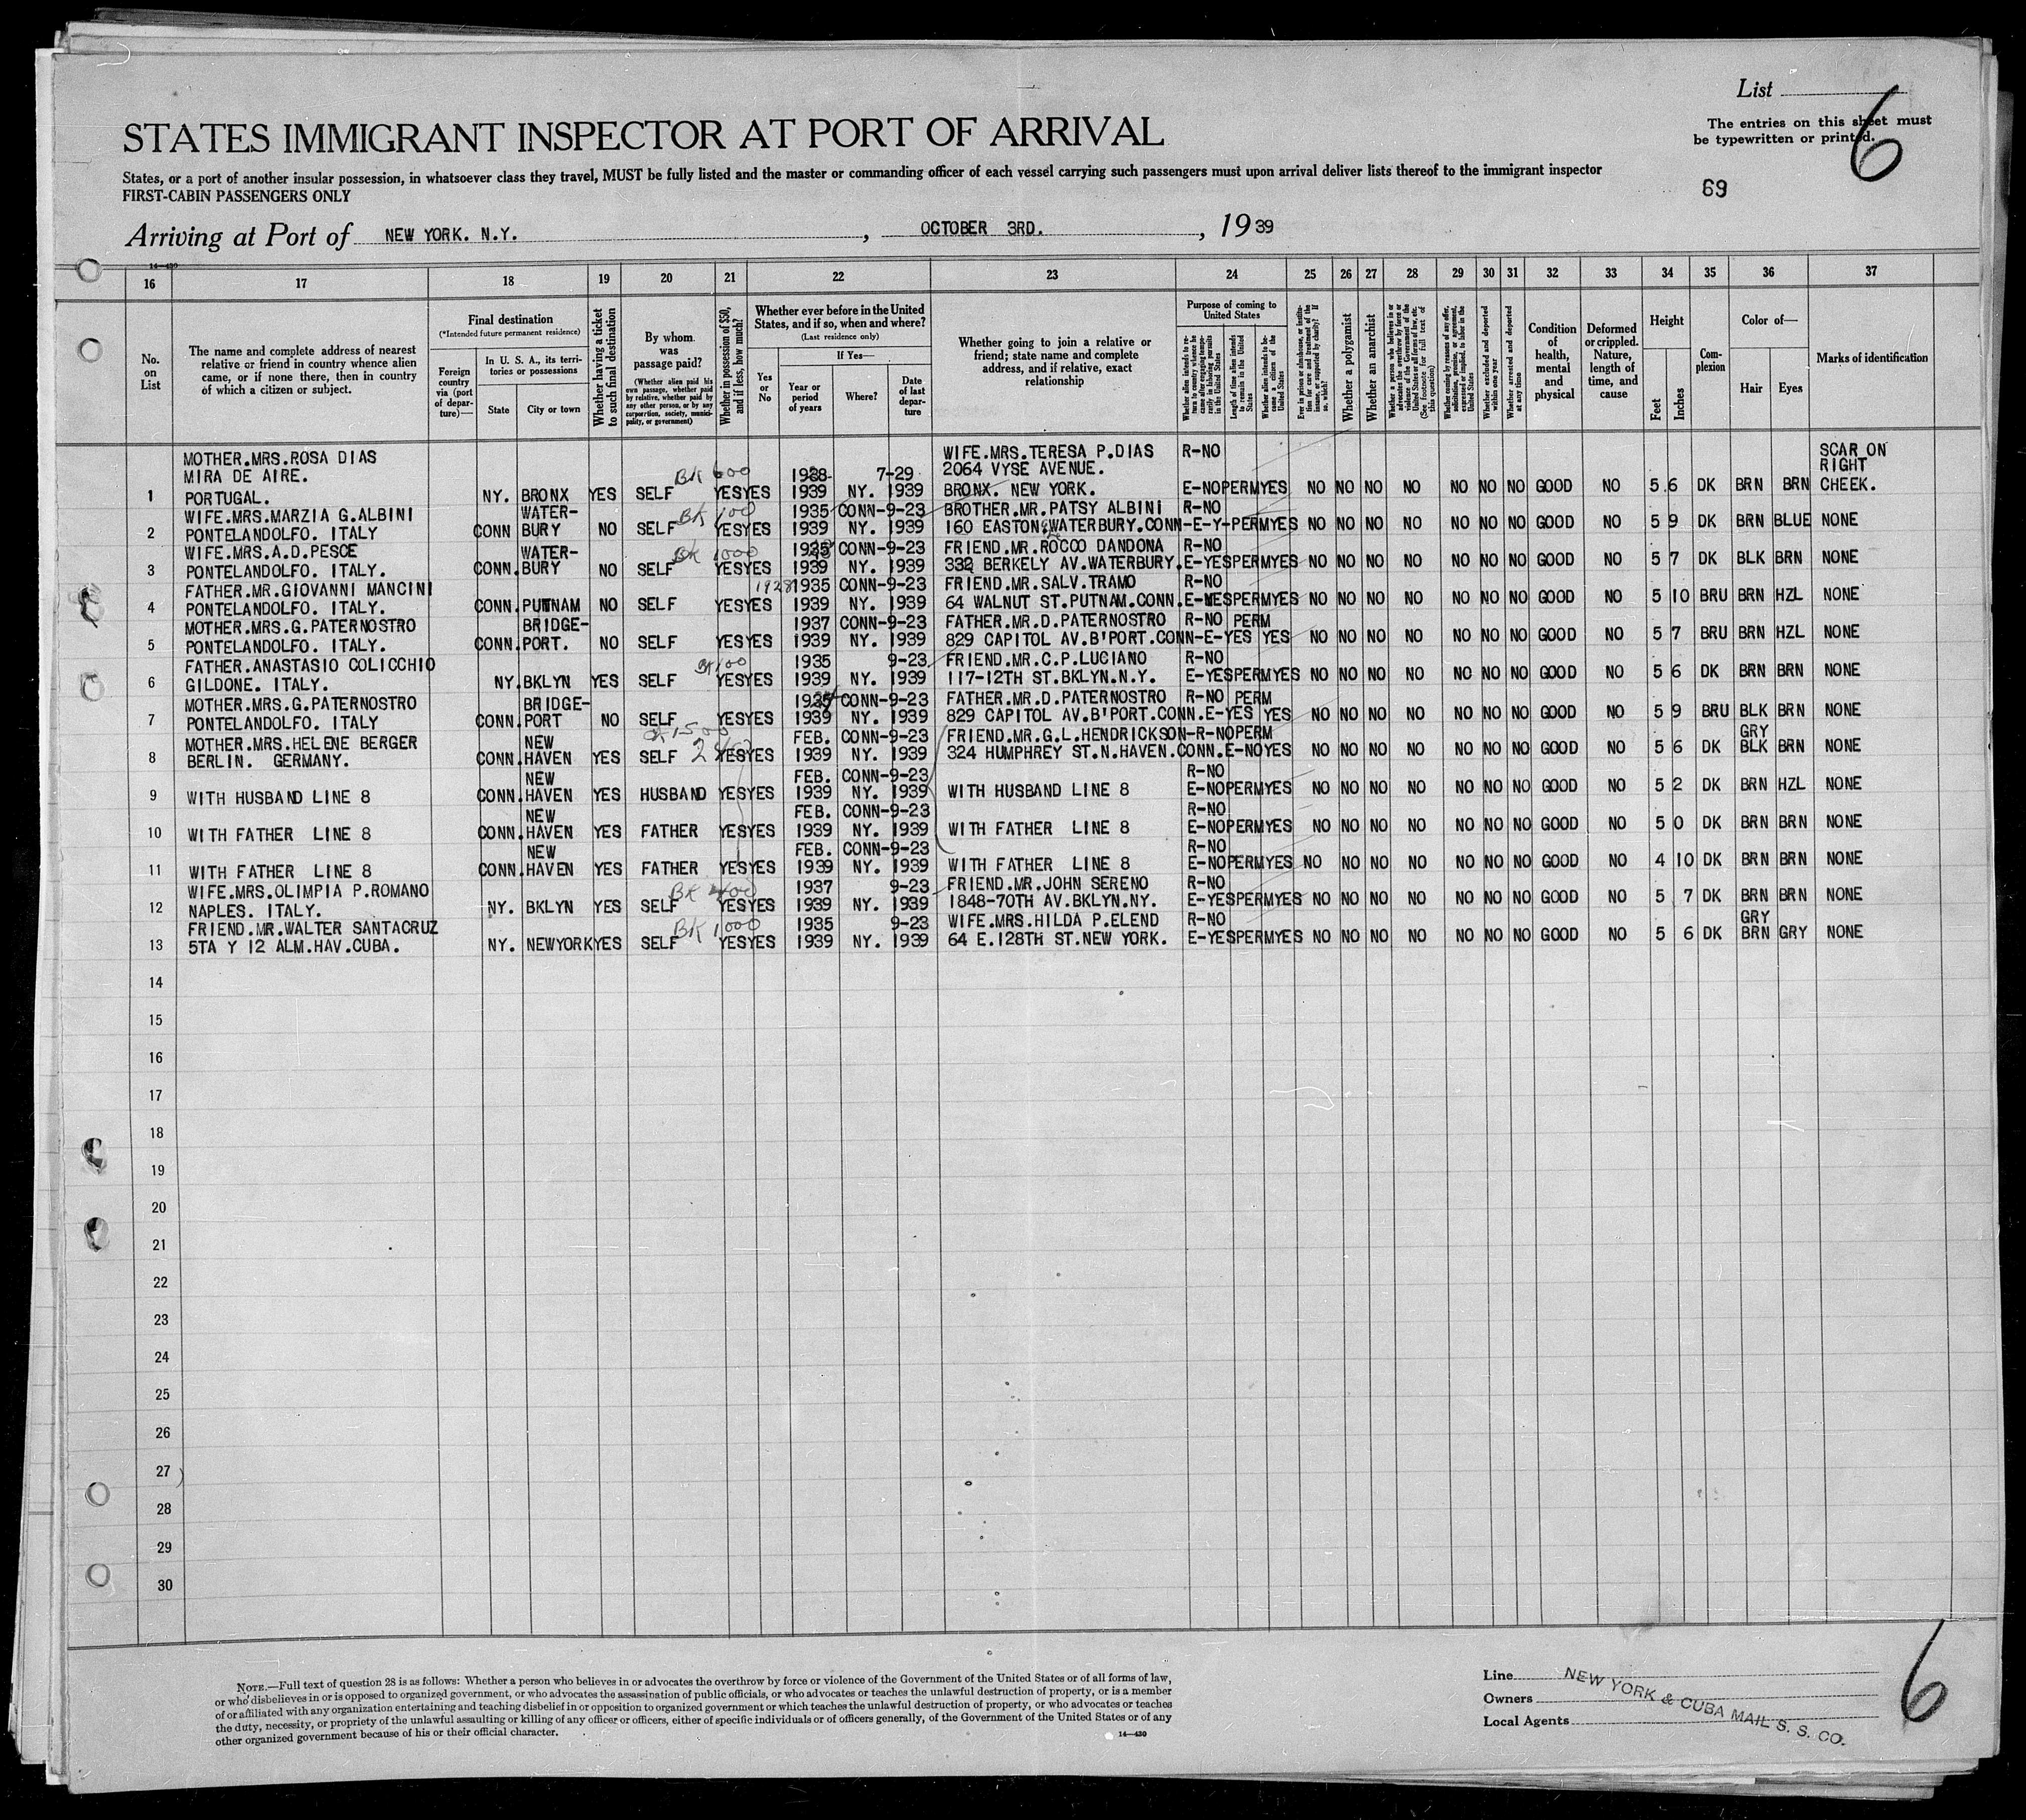 List
6
The entries on this sheet must
be typewritten or printed.
STATES IMMIGRANT INSPECTOR AT PORT OF ARRIVAL
States, or a port of another insular possession, in whatsoever class they travel, MUST be fully listed and the master or commanding officer of each vessel carrying such passengers must upon arrival deliver lists thereof to the immigrant inspector
FIRST-CABIN PASSENGERS ONLY
69
Arriving at Port of NEW YORK. N.Y. , OCTOBER 3RD. , 1939
14-430
16 17 18 19 20 21 22 23 24 25 26 27 28 29 30 31 32 33 34 35 36 37
No. on List
The name and complete address of nearest relative or friend in country whence alien came, or if none there, then in country of which a citizen or subject.
Final destination
(*Intended future permanent residence)
Foreign country via (port of departure)—
In U. S. A., its territories or possessions
State
City or town
Whether having a ticket to such final destination
By whom was passage paid?
(Whether alien paid his own passage, whether paid by relative, whether paid by any other person, or by any corporation, society, municipality, or government)
Whether in possession of $50, and if less, how much?
Whether ever before in the United States, and if so, when and where?
(Last residence only)
Yes or No
If Yes—
Year or period of years
Where?
Date of last departure
Whether going to join a relative or friend; state name and complete address, and if relative, exact relationship
Purpose of coming to United States
Length of time alien intends to remain in the United States
Whether alien intends to become a citizen of the United States
Whether a polygamist
Whether an anarchist
Whether excluded and deported within one year
Whether arrested and deported at any time
Condition of health, mental and physical
Deformed or crippled. Nature, length of time, and cause
Height
Feet
Inches
Complexion
Color of—
Hair
Eyes
Marks of identification
MOTHER.MRS.ROSA DIAS WIFE.MRS.TERESA P.DIAS R-NO SCAR ON
MIRA DE AIRE. BK 600 1928- 7-29 2064 VYSE AVENUE. RIGHT
1 PORTUGAL. NY. BRONX YES SELF YES YES 1939 NY. 1939 BRONX. NEW YORK. E-NO PERM YES NO NO NO NO NO NO NO GOOD NO 5 6 DK BRN BRN CHEEK.
WIFE.MRS.MARZIA G.ALBINI WATER- BK 100 1935 CONN-9-23 BROTHER.MR.PATSY ALBINI R-NO
2 PONTELANDOLFO. ITALY CONN BURY NO SELF YES YES 1939 NY. 1939 160 EASTON WATERBURY.CONN-E-Y-PERM YES NO NO NO NO NO NO NO GOOD NO 5 9 DK BRN BLUE NONE
WIFE.MRS.A.D.PESCE WATER- BK 1000 CONN-9-23 FRIEND.MR.ROCCO DANDONA R-NO
3 PONTELANDOLFO. ITALY. CONN. BURY NO SELF YES YES 1939 NY. 1939 332 BERKELY AV.WATERBURY. E-YES PERM YES NO NO NO NO NO NO NO GOOD NO 5 7 DK BLK BRN NONE
FATHER.MR.GIOVANNI MANCINI 1928 1935 CONN-9-23 FRIEND.MR.SALV.TRAMO R-NO
4 PONTELANDOLFO. ITALY. CONN. PUTNAM NO SELF YES YES 1939 NY. 1939 64 WALNUT ST.PUTNAM.CONN. E-YES PERM YES NO NO NO NO NO NO NO GOOD NO 5 10 BRU BRN HZL NONE
MOTHER.MRS.G.PATERNOSTRO BRIDGE- 1937 CONN-9-23 FATHER.MR.D.PATERNOSTRO R-NO PERM
5 PONTELANDOLFO. ITALY. CONN. PORT. NO SELF YES YES 1939 NY. 1939 829 CAPITOL AV.B'PORT.CONN-E-YES YES NO NO NO NO NO NO NO GOOD NO 5 7 BRU BRN HZL NONE
FATHER.ANASTASIO COLICCHIO BK 100 1935 9-23 FRIEND.MR.C.P.LUCIANO R-NO
6 GILDONE. ITALY. NY. BKLYN YES SELF YES YES 1939 NY. 1939 117-12TH ST.BKLYN.N.Y. E-YES PERM YES NO NO NO NO NO NO NO GOOD NO 5 6 DK BRN BRN NONE
MOTHER.MRS.G.PATERNOSTRO BRIDGE- CONN-9-23 FATHER.MR.D.PATERNOSTRO R-NO PERM
7 PONTELANDOLFO. ITALY CONN. PORT NO SELF YES YES 1939 NY. 1939 829 CAPITOL AV.B'PORT.CONN.E-YES YES NO NO NO NO NO NO NO GOOD NO 5 9 BRU BLK BRN NONE
MOTHER.MRS.HELENE BERGER NEW FEB. CONN-9-23 FRIEND.MR.G.L.HENDRICKSON-R-NO PERM GRY
8 BERLIN. GERMANY. CONN. HAVEN YES SELF YES YES 1939 NY. 1939 324 HUMPHREY ST.N.HAVEN.CONN.E-NO YES NO NO NO NO NO NO NO GOOD NO 5 6 DK BLK BRN NONE
NEW FEB. CONN-9-23 R-NO
9 WITH HUSBAND LINE 8 CONN. HAVEN YES HUSBAND YES YES 1939 NY. 1939 WITH HUSBAND LINE 8 E-NO PERM YES NO NO NO NO NO NO NO GOOD NO 5 2 DK BRN HZL NONE
NEW FEB. CONN-9-23 R-NO
10 WITH FATHER LINE 8 CONN. HAVEN YES FATHER YES YES 1939 NY. 1939 WITH FATHER LINE 8 E-NO PERM YES NO NO NO NO NO NO NO GOOD NO 5 0 DK BRN BRN NONE
NEW FEB. CONN-9-23 R-NO
11 WITH FATHER LINE 8 CONN. HAVEN YES FATHER YES YES 1939 NY. 1939 WITH FATHER LINE 8 E-NO PERM YES NO NO NO NO NO NO NO GOOD NO 4 10 DK BRN BRN NONE
WIFE.MRS.OLIMPIA P.ROMANO BK 1937 9-23 FRIEND.MR.JOHN SERENO R-NO
12 NAPLES. ITALY. NY. BKLYN YES SELF YES YES 1939 NY. 1939 1848-70TH AV.BKLYN.NY. E-YES PERM YES NO NO NO NO NO NO NO GOOD NO 5 7 DK BRN BRN NONE
FRIEND.MR.WALTER SANTACRUZ BK 1000 1935 9-23 WIFE.MRS.HILDA P.ELEND R-NO GRY
13 5TA Y 12 ALM.HAV.CUBA. NY. NEWYORK YES SELF YES YES 1939 NY. 1939 64 E.128TH ST.NEW YORK. E-YES PERM YES NO NO NO NO NO NO NO GOOD NO 5 6 DK BRN GRY NONE
14
15
16
17
18
19
20
21
22
23
24
25
26
27
28
29
30
NOTE.—Full text of question 28 is as follows: Whether a person who believes in or advocates the overthrow by force or violence of the Government of the United States or of all forms of law,
or who disbelieves in or is opposed to organized government, or who advocates the assassination of public officials, or who advocates or teaches the unlawful destruction of property, or is a member
of or affiliated with any organization entertaining and teaching disbelief in or opposition to organized government or which teaches the unlawful destruction of property, or who advocates or teaches
the duty, necessity, or propriety of the unlawful assaulting or killing of any officer or officers, either of specific individuals or of officers generally, of the Government of the United States or of any
other organized government because of his or their official character.
14-430
Line
Owners
Local Agents
NEW YORK & CUBA MAIL S. S. CO.
6